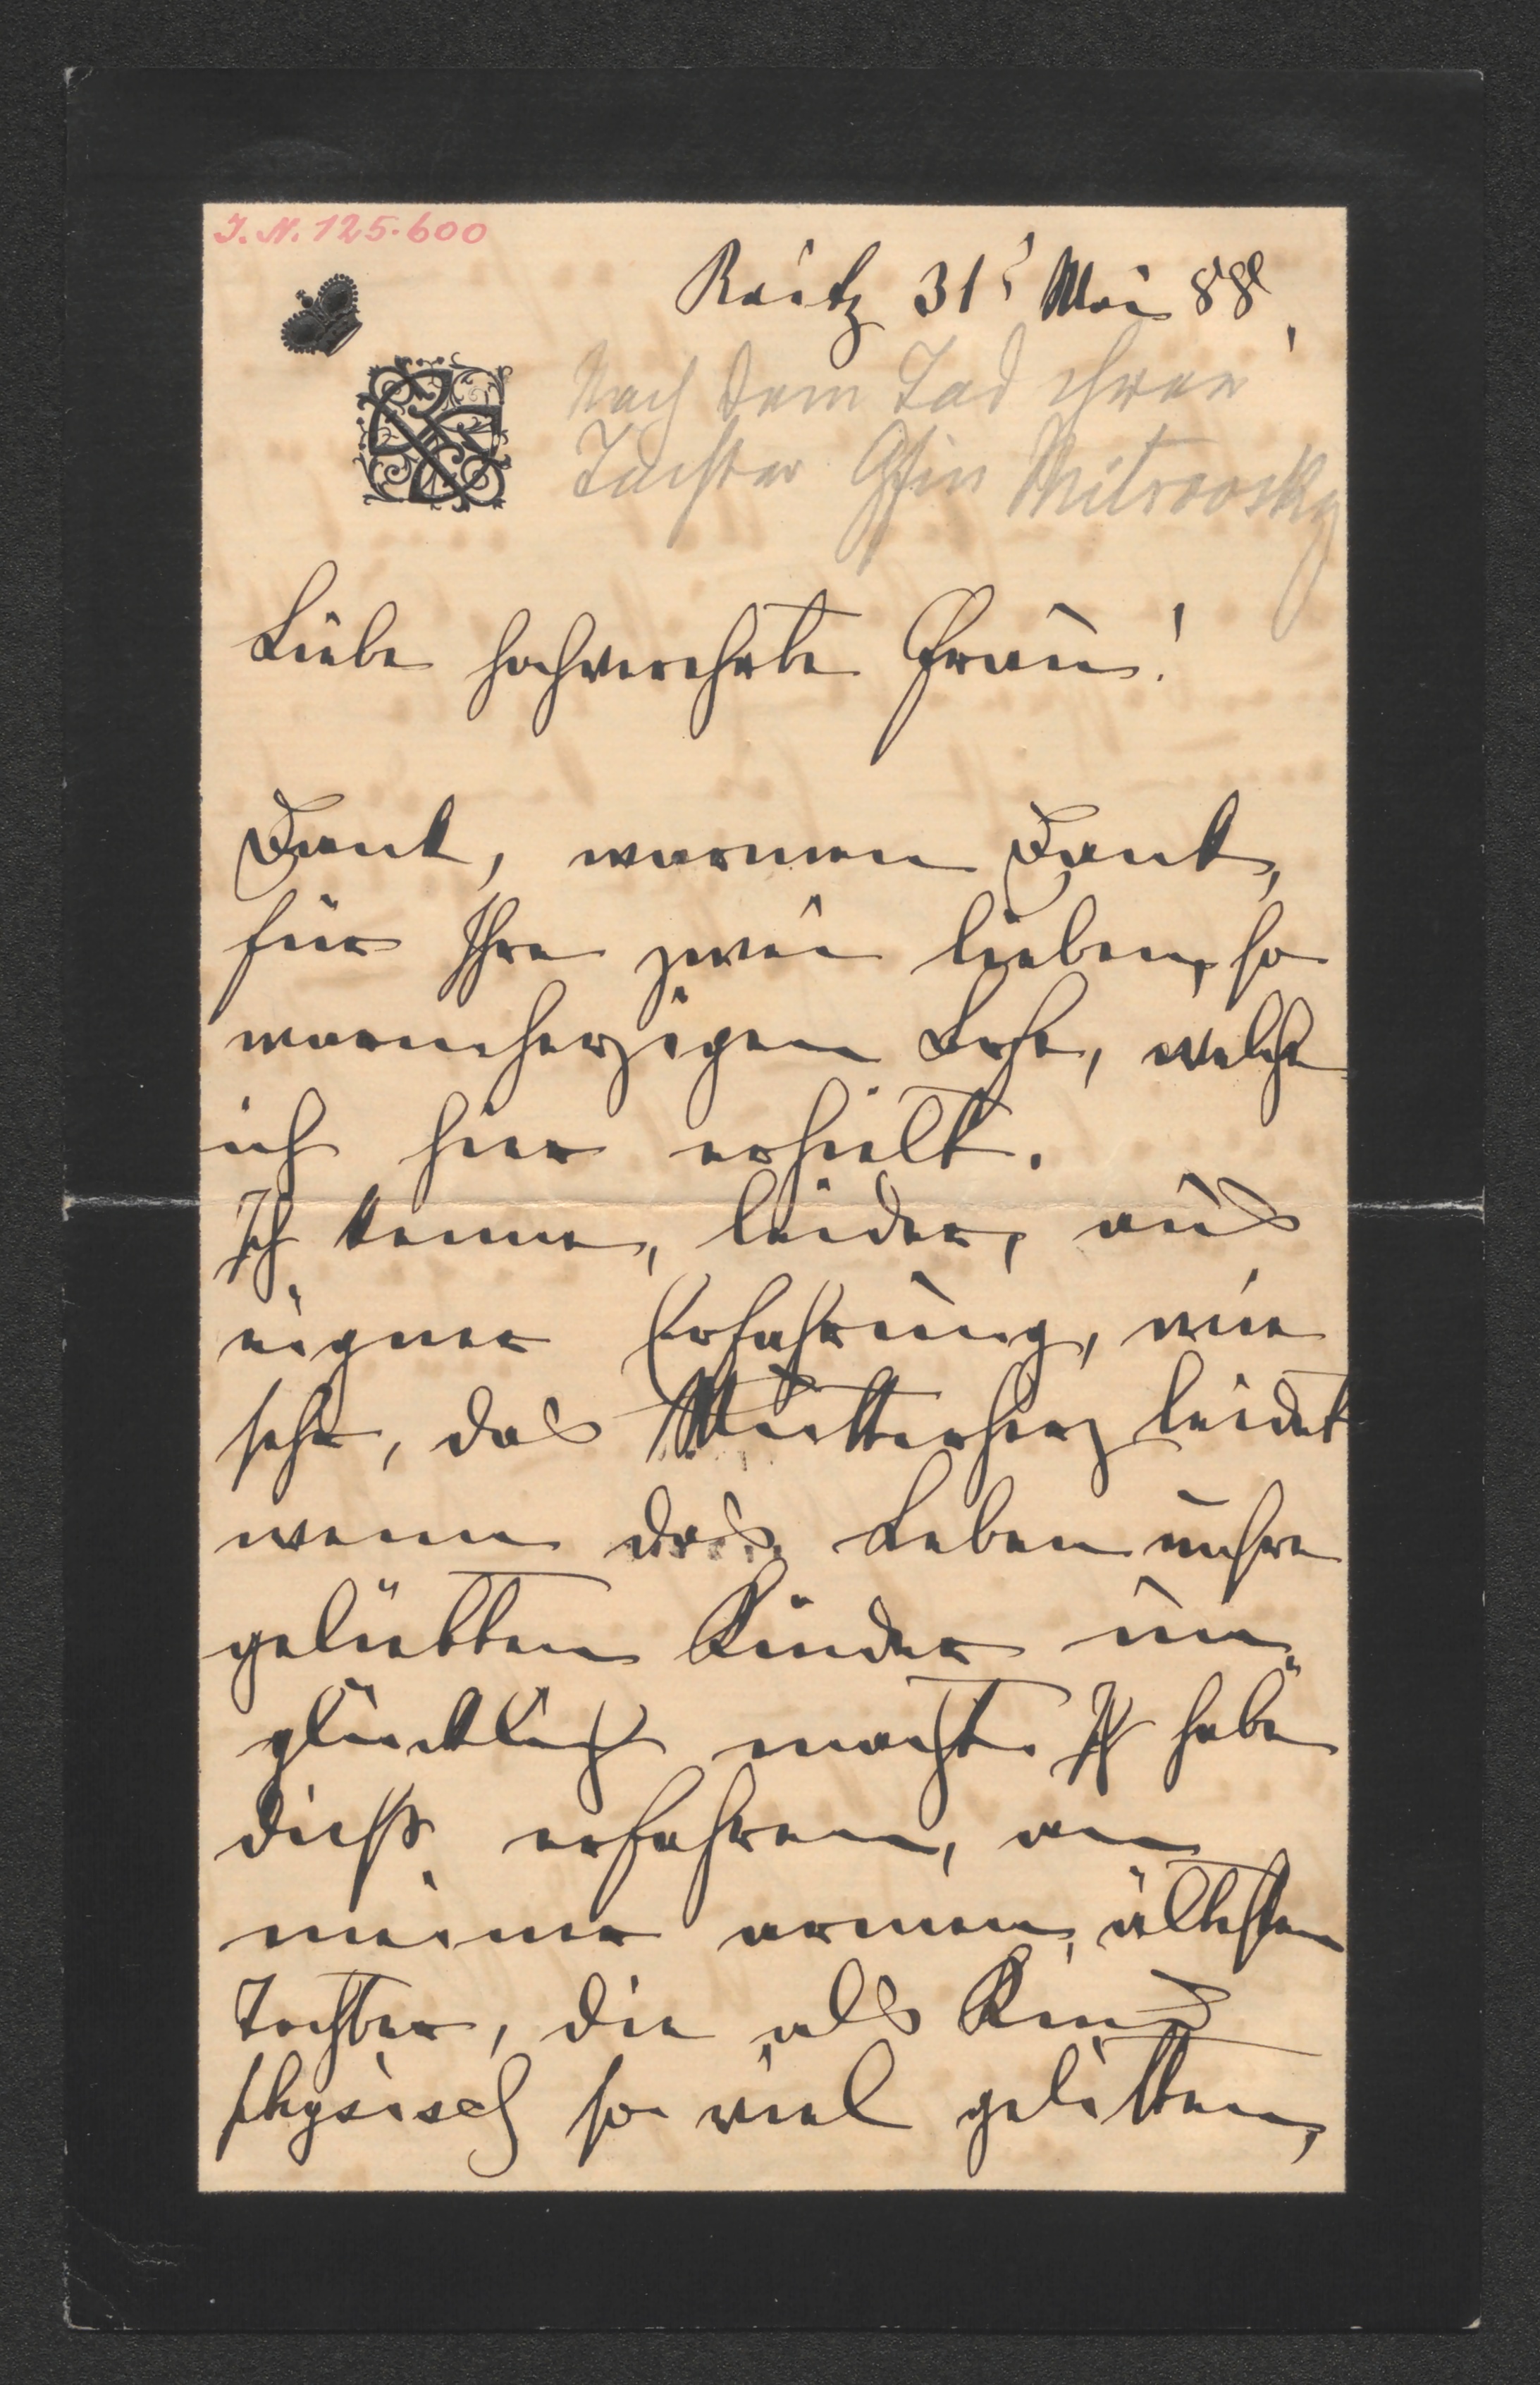 I.N. 125.600
Raitz 31t Mai 88.
Nach dem Tod ihrer
Tochter Gfin Mitrovsky
Liebe hochverehrte Frau!
Dank, warmen Dank,
für Ihre zwei lieben, so
warmherzigen Brfe, welche
ich hier erhielt.
Ich kenne, leider, aus
eigner Erfahrung, wie
sehr, das Mutterherz leidet
wenn das Leben unsre
geliebten Kinder un
glücklich macht. Ich habe
dieß erfahren, an
meiner armen, ältesten
Tochter, die als Kind
physisch so viel gelitten,